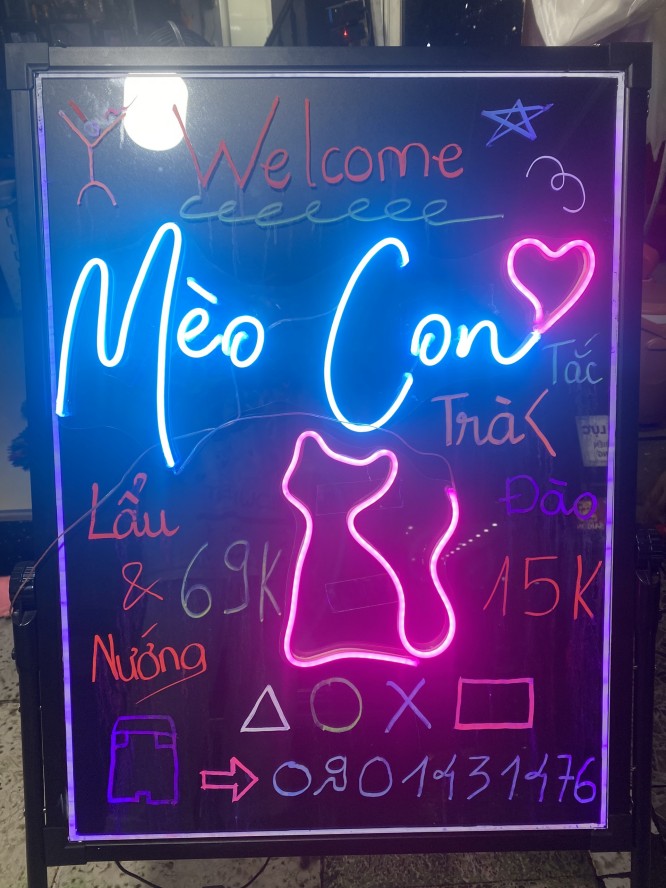 Welcome
Mèo Con
Trà
Tắc
Đào
15K
Lẩu
&
Nướng
69K
0901431476